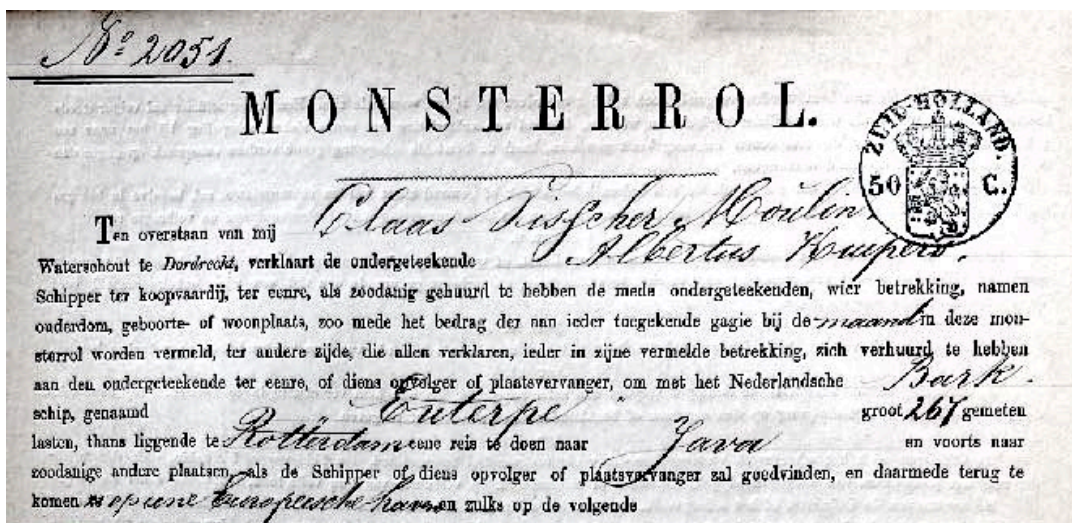 No 2051.
MONSTERROL.
ZUID-HOLLAND.
50 C.
Ten overstaan van mij Claas Visscher Moulin
Waterschout te Dordrecht, verklaart de ondergeteekende Albertus Kuipers,
Schipper ter koopvaardij, ter eenre, als zoodanig gehuurd te hebben de mede ondergeteekenden, wier betrekking, namen
ouderdom, geboorte- of woonplaats, zoo mede het bedrag der aan ieder toegekende gagie bij de maand in deze mon-
sterrol worden vermeld, ter andere zijde, die allen verklaren, ieder in zijne vermelde betrekking, zich verhuurd te hebben
aan den ondergeteekende ter eenre, of diens opvolger of plaatsvervanger, om met het Nederlandsche Bark
schip, genaamd Euterpe groot 267 gemeten
lasten, thans liggende te Rotterdam eene reis te doen naar Java en voorts naar
zoodanige andere plaatsen, als de Schipper of diens opvolger of plaatsvervanger zal goedvinden, en daarmede terug te
komen op eene Europesche haven en zulks op de volgende